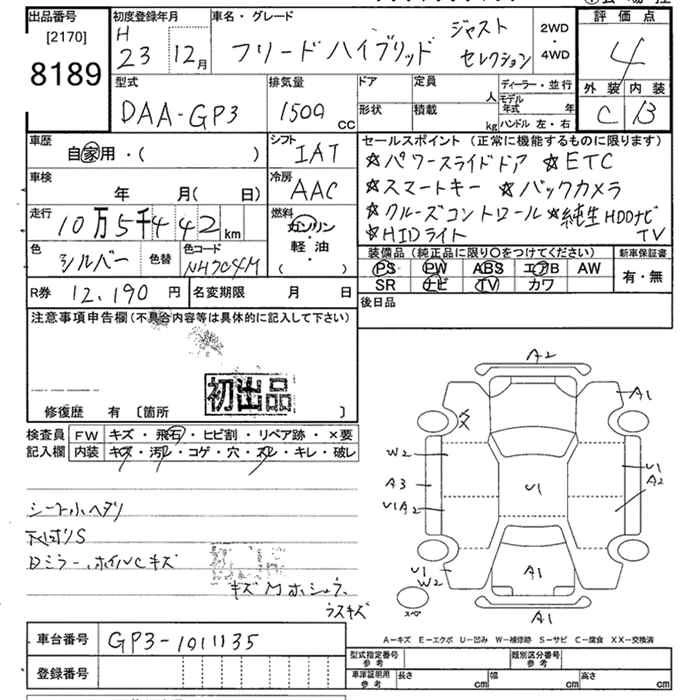 出品番号
[2170]
8189
初度登録年月
H
23 12月
車名・グレード
フリードハイブリッド
ジャスト
セレクション
2WD
・
4WD
評価点
4
外装 内装
C B
型式
DAA-GP3
排気量
1500 cc
ドア
定員
人
形状
積載
kg
ディーラー・並行
モデル
年式 年
ハンドル 左・右
車歴
自家用・( )
シフト
IAT
セールスポイント (正常に機能するものに限ります)
☆パワースライドドア ☆ETC
☆スマートキー ☆バックカメラ
☆クルーズコントロール ☆純正HDDナビ
☆HIDライト TV
車検
年 月( 日)
冷房
AAC
走行
10万5千442 km
燃料
ガソリン
軽・油
( ・ )
色
シルバー
色替
色コード
NH704M
装備品 (純正品に限り○をつけてください)
PS PW ABS エアB AW
SR ナビ TV カワ
新車保証書
有・無
R券 12,190 円
名変期限 月 日
後日品
注意事項申告欄 (不具合内容等は具体的に記入して下さい)
初出品
修復歴 有 〔箇所 〕
検査員
記入欄
FW キズ・飛石・ヒビ割・リペア跡・×要
内装 キズ・汚レ・コゲ・穴・スレ・キレ・破レ
シート小ヘタリ
天ばりS
Dミラー、ホイルCキズ
キズM ホシュウ
ラスキズ
A2
A1
W2
A3
U1A2
U1
U1
A2
U1
W2
A1
A1
スペア
A－キズ E－エクボ U－凹み W－補修跡 S－サビ C－腐食 XX－交換済
車台番号 GP3-1011135
登録番号
型式指定番号
参考
類別区分番号
参考
車庫証明用
参考
長さ cm
幅 cm
高さ cm